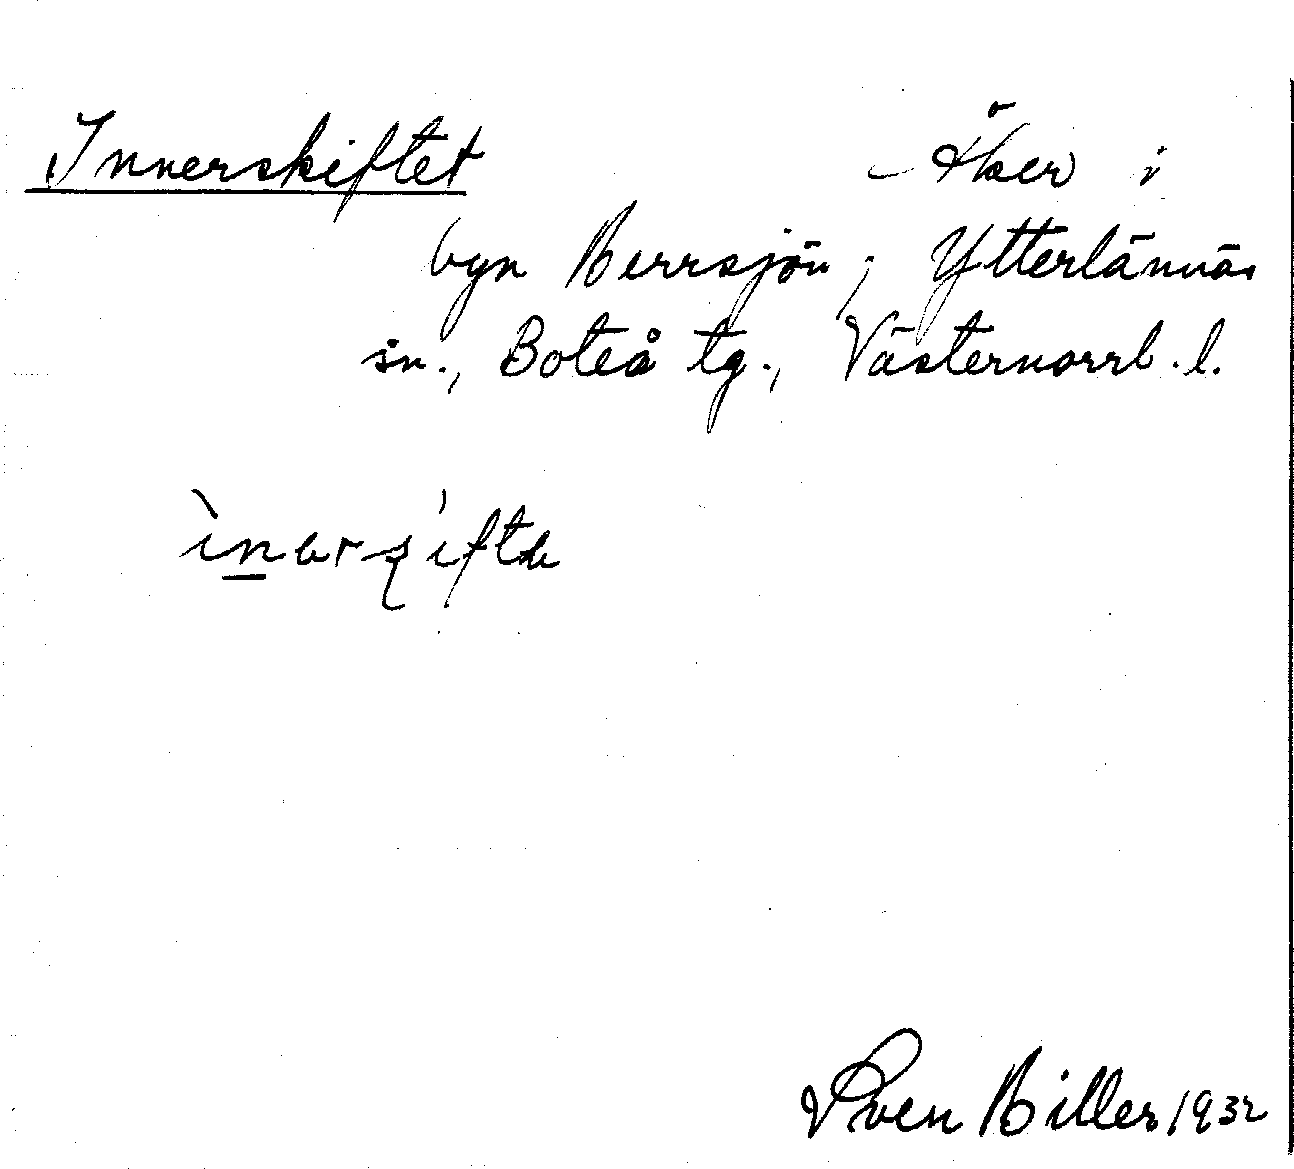 Innerskiftet Åker i
byn Berrsjön, Ytterlännäs
sn., Boteå tg., Västernorrl. l.
Sven Biller 1932